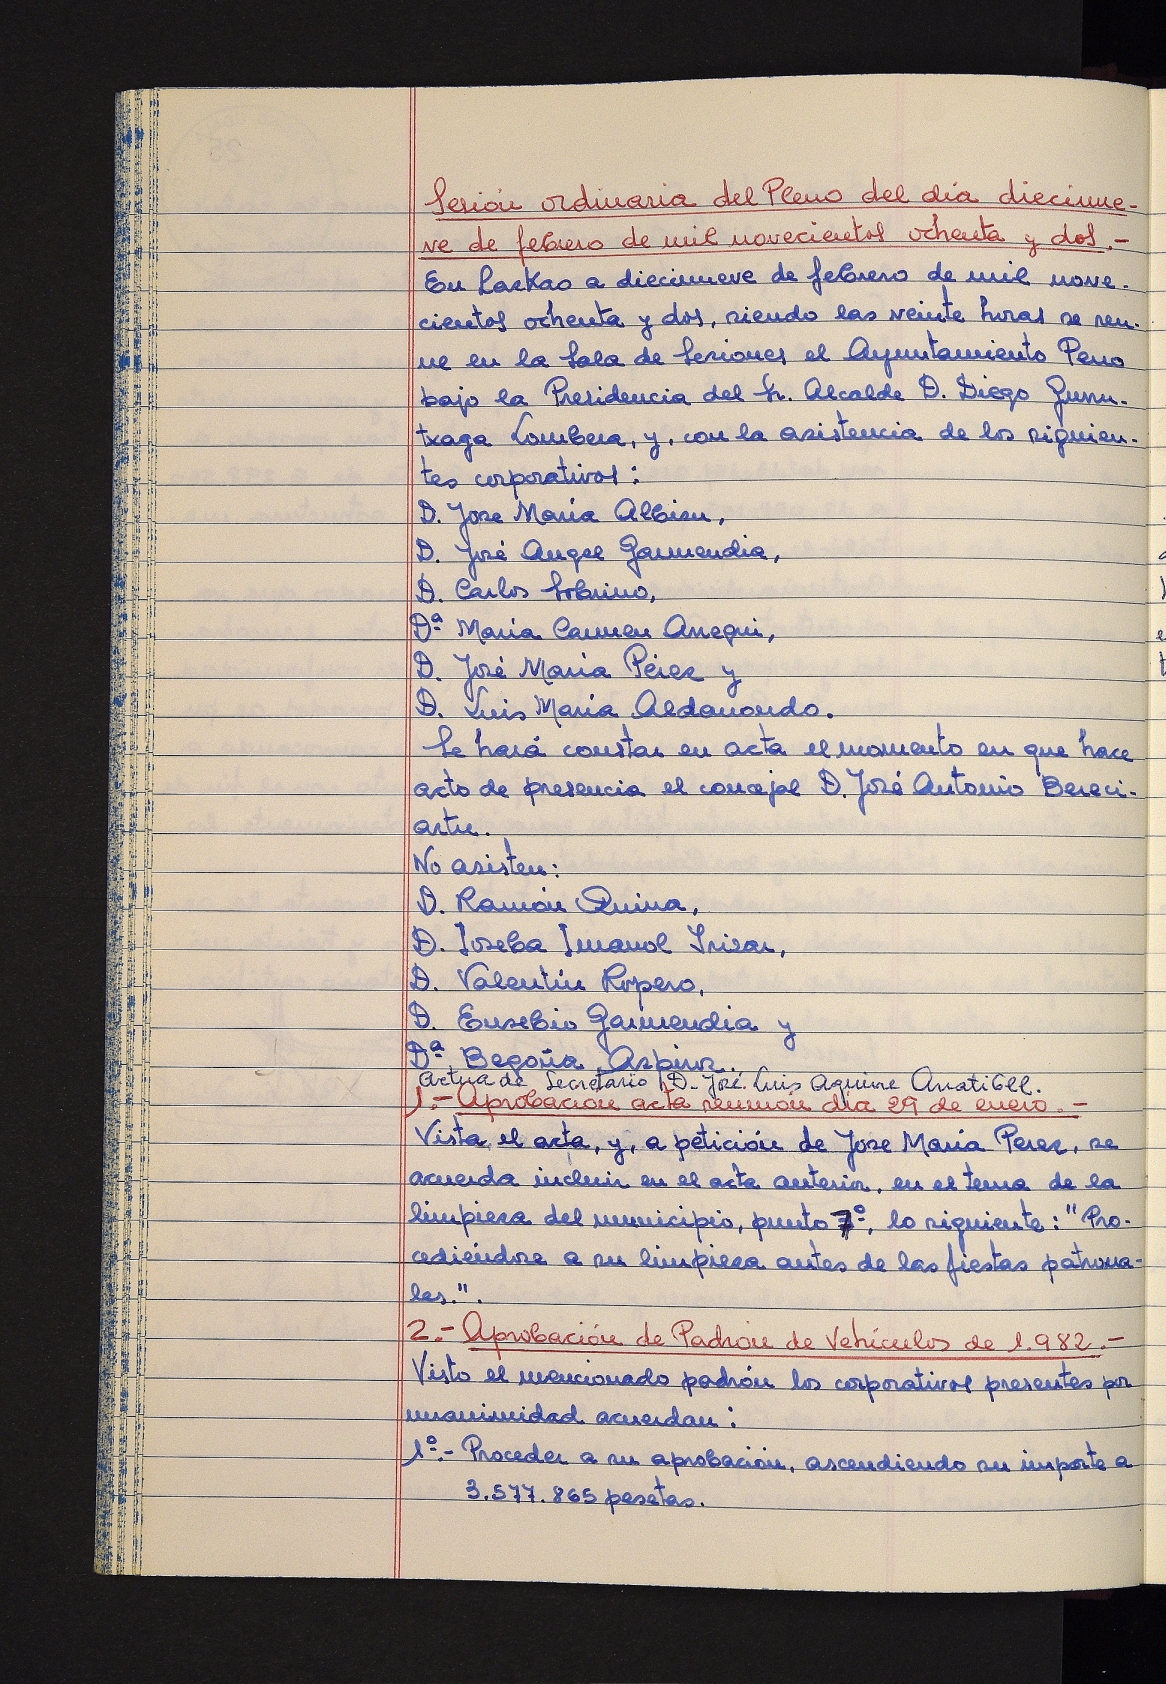 Sesión ordinaria del Pleno del día diecinue-
ve de febrero de mil novecientos ochenta y dos.-
En Lazkao a diecinueve de febrero de mil nove-
cientos ochenta y dos, siendo las veinte horas se reu-
ne en la Sala de Sesiones el Ayuntamiento Peno
bajo la Presidencia del Sr. Alcalde D. Diego Gurru-
txaga Lombera, y, con la asistencia de los siguien-
tes corporativos:
D. Jose María Albisu,
D. José Angel Garmendia,
D. Carlos Sobrino,
Dª María Carmen Aregui,
D. José María Pérez y
D. Luis María Aldanondo.
Se hará constar en acta el momento en que hace
acto de presencia el concejal D. José Antonio Bereci-
artu.
No asisten:
D. Ramón Quina,
D. Joseba Imanol Irizar,
D. Valentín Ropero,
D. Eusebio Garmendia y
Dª Begoña Azpiroz.
Actua de Secretario D. José Luis Aguirre Arratibel.
1.- Aprobación acta reunión día 29 de enero.-
Vista el acta, y, a petición de Jose María Perez, se
acuerda incluir en el acta anterior, en el tema de la
limpieza del municipio, punto 7º, lo siguiente: "Pro-
cediéndose a su limpieza antes de las fiestas patrona-
les.".
2.- Aprobación de Padrón de Vehículos de 1.982.-
Visto el mencionado padrón los corporativos presentes por
unanimidad acuerdan:
1º.- Proceder a su aprobación, ascendiendo su importe a
3.577.865 pesetas.